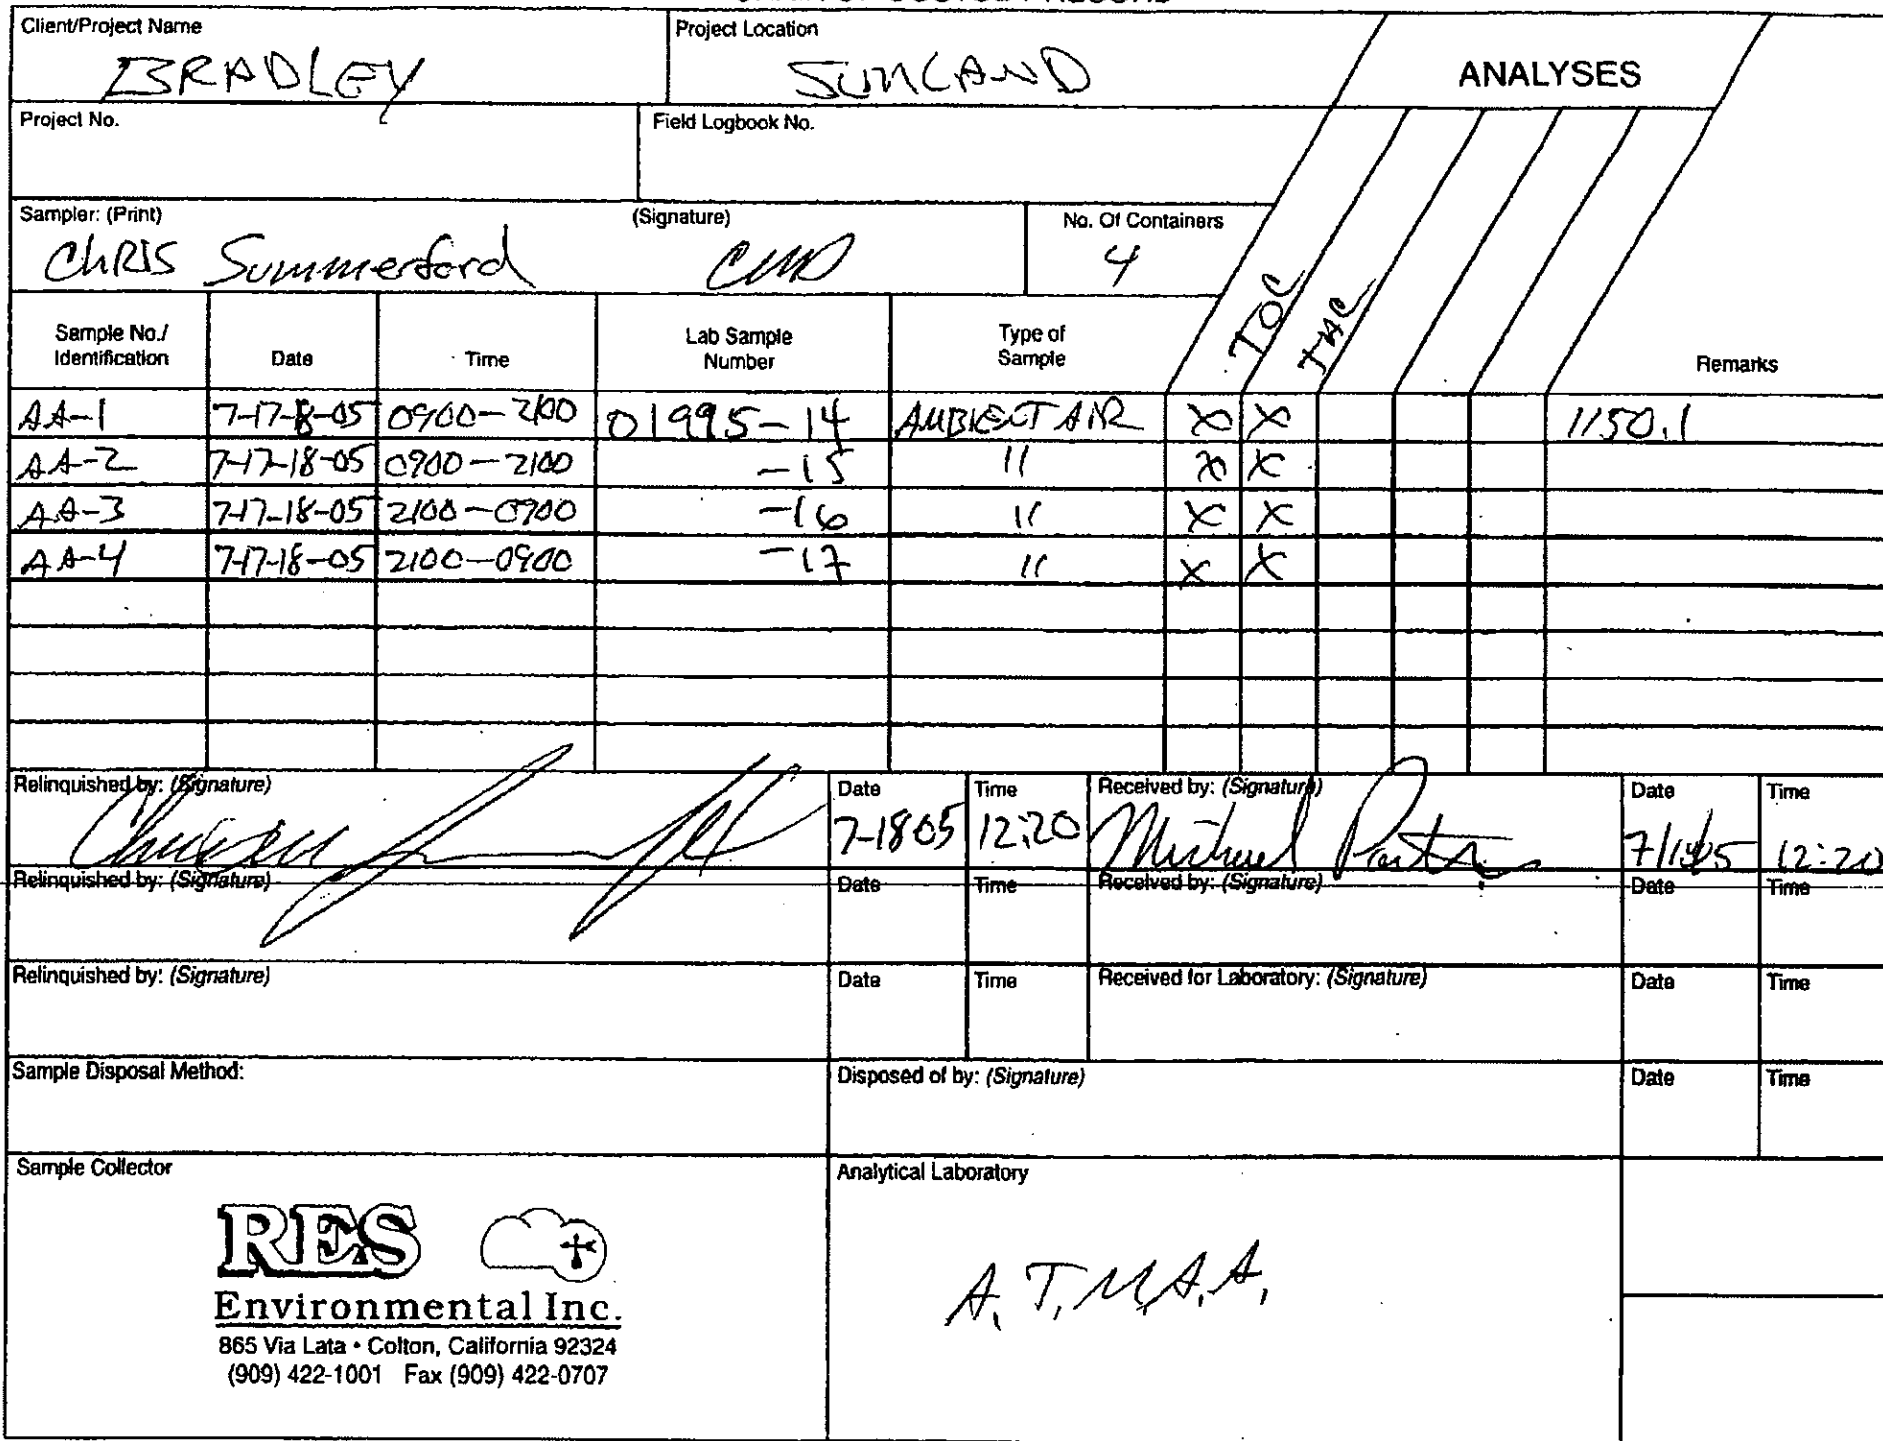 Client/Project Name
BRADLEY
Project Location
SUNLAND
ANALYSES
Project No.
Field Logbook No.
Sampler: (Print)
CHRIS Summerford
(Signature)
No. Of Containers
4
TOC
TAC
Sample No./
Identification
Date
Time
Lab Sample
Number
Type of
Sample
Remarks
AA-1 7-17-18-05 0900-2100 01995-14 AMBIENT AIR X X 1150.1
AA-2 7-17-18-05 0900-2100 -15 " X X
AA-3 7-17-18-05 2100-0900 -16 " X X
AA-4 7-17-18-05 2100-0900 -17 " X X
Relinquished by: (Signature)
Date
7-18-05
Time
12:20
Received by: (Signature)
Michael
Date
Time
12:20
Relinquished by: (Signature)
Date
Time
Received by: (Signature)
Date
Time
Relinquished by: (Signature)
Date
Time
Received for Laboratory: (Signature)
Date
Time
Sample Disposal Method:
Disposed of by: (Signature)
Date
Time
Sample Collector
RES
Environmental Inc.
865 Via Lata • Colton, California 92324
(909) 422-1001 Fax (909) 422-0707
Analytical Laboratory
A.T.M.A.A.